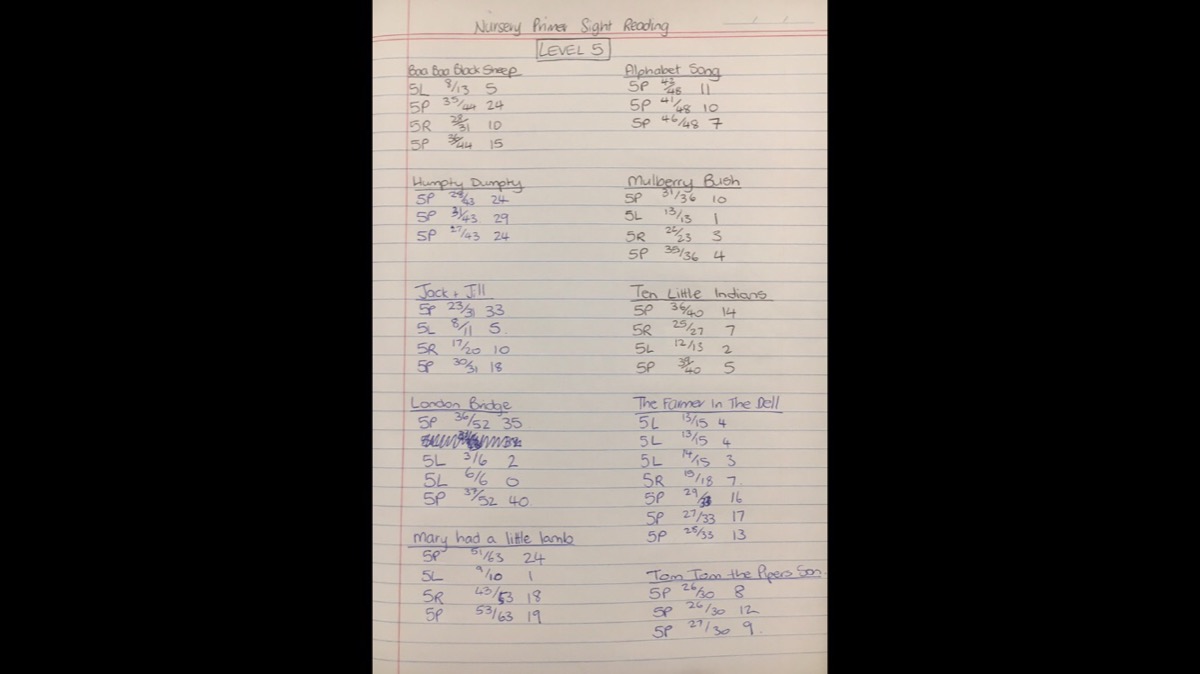 Nursery Primer Sight Reading
LEVEL 5
Baa Baa Black Sheep
5L 8/13 5
5P 35/44 24
5R 28/31 10
5P 36/44 15
Humpty Dumpty
5P 29/43 24
5P 31/43 29
5P 27/43 24
Jack + Jill
5P 23/31 33
5L 8/11 5
5R 17/20 10
5P 30/31 18
London Bridge
5P 36/52 35
5L 3/6 2
5L 6/6 0
5P 37/52 40
Mary had a little lamb
5P 51/63 24
5L 9/10 1
5R 43/53 18
5P 53/63 19
Alphabet Song
5P 43/48 11
5P 41/48 10
5P 46/48 7
Mulberry Bush
5P 31/36 10
5L 13/13 1
5R 22/23 3
5P 35/36 4
Ten Little Indians
5P 36/40 14
5R 25/27 7
5L 12/13 2
5P 38/40 5
The Farmer In The Dell
5L 13/15 4
5L 13/15 4
5L 14/15 3
5R 15/18 7
5P 29/33 16
5P 27/33 17
5P 25/33 13
Tom Tom the Pipers Son
5P 26/30 8
5P 26/30 12
5P 27/30 9